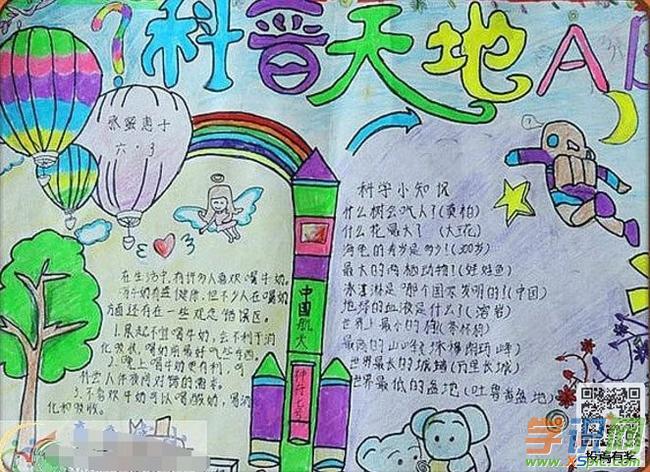 科普天地
张蜜惠子
六.3
科学小知识
什么树会吃人？(奠柏)
什么花最大？(大王花)
海龟的寿命是多少？(300岁)
最大的两栖动物？(娃娃鱼)
冰淇淋是哪个国家发明的？(中国)
地球的血液是什么？(溶岩)
世界上最小的狗(茶杯狗)
最高的山峰珠穆朗玛峰
世界最长的城墙(万里长城)
世界最低的盆地(吐鲁番盆地)
在生活中,有许多人喜欢喝牛奶。
牛奶有益健康,但不少人在喝奶
方面还存在一些观念错误区。
1.晨起不宜喝牛奶,会不利于消
化吸收,喝奶前最好吃些东西。
2.晚上喝牛奶更有利,可
3.不喜欢牛奶可以喝酸奶,易消
化和吸收。
中国航天
神舟七号
学识网
投稿有奖